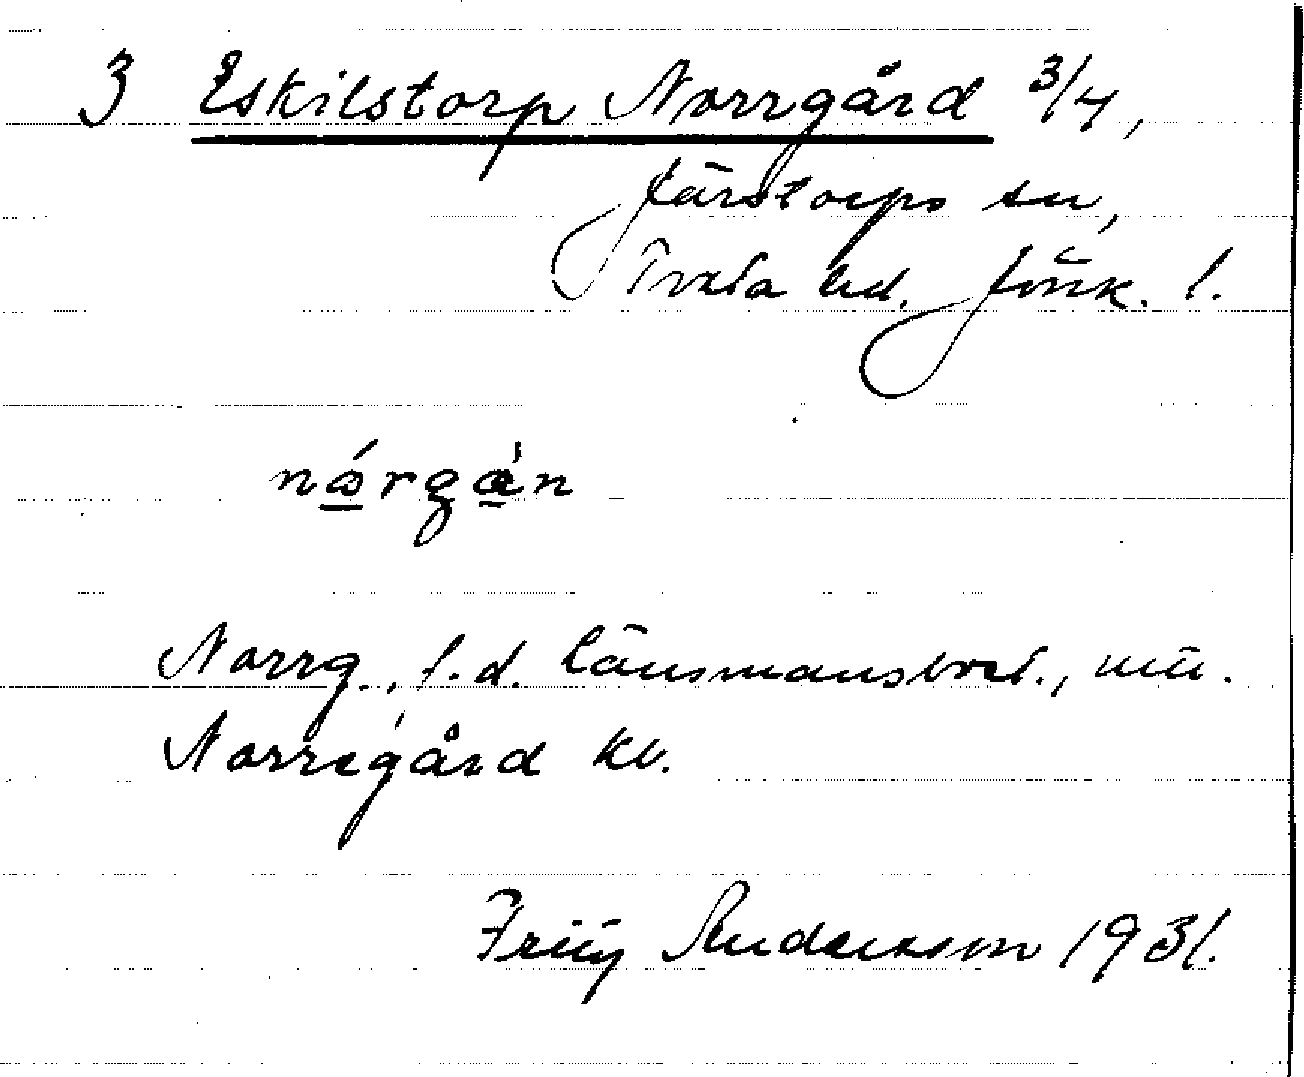 3 Eskilstorp Norrgård 3/4,
Järstorps sn,
Tveta hd. Jönk. l.
Norrg., f.d. länsmansbost., nu.
Norregård kv.
Fritz Andersson 1931.